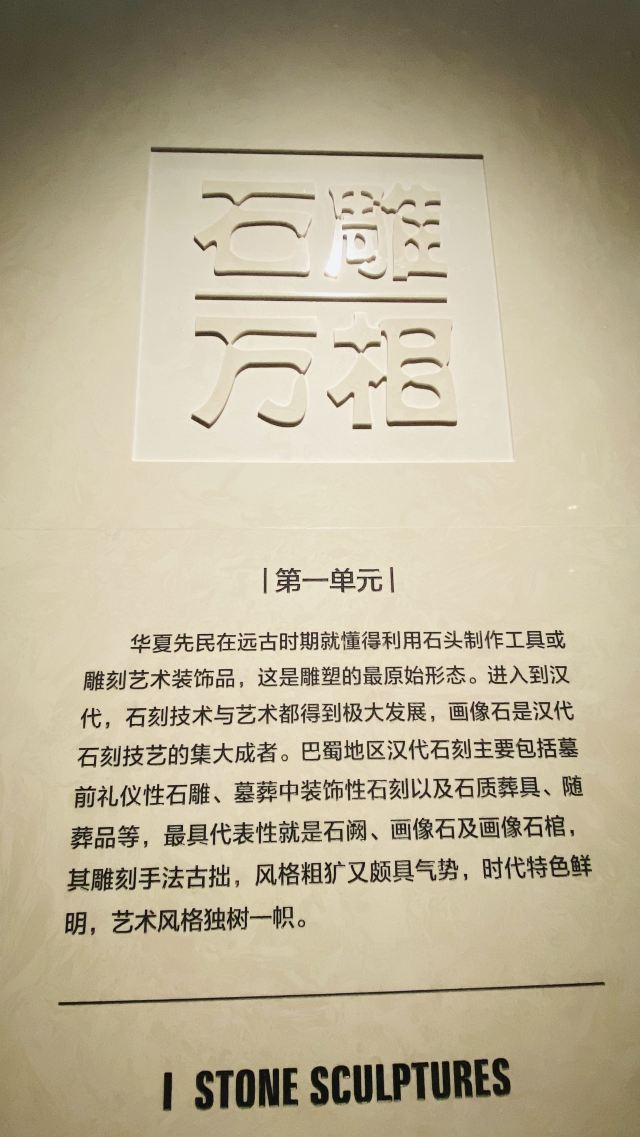 石雕
万相
|第一单元|
华夏先民在远古时期就懂得利用石头制作工具或
雕刻艺术装饰品，这是雕塑的最原始形态。进入到汉
代，石刻技术与艺术都得到极大发展，画像石是汉代
石刻技艺的集大成者。巴蜀地区汉代石刻主要包括墓
前礼仪性石雕、墓葬中装饰性石刻以及石质葬具、随
葬品等，最具代表性就是石阙、画像石及画像石棺，
其雕刻手法古拙，风格粗犷又颇具气势，时代特色鲜
明，艺术风格独树一帜。
I STONE SCULPTURES